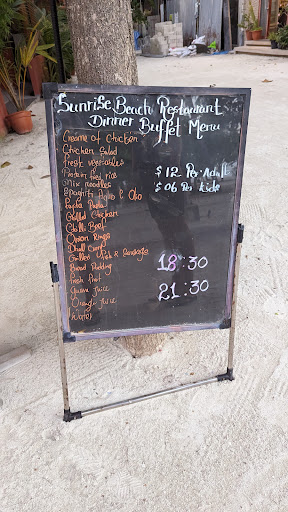 Sunrise Beach Restaurant
Dinner Buffet Menu
Creame of Chicken
Chicken Salad
Fresh vegetables
$ 12 Per Adult
Protein fried rice
$ 06 Per Kids
Mix noodles
Spaghiti Aglio E Olio
Pasta
Grilled Chicken
Chilli Beef
Onion Rings
Dhal Curry
Grilled Fish & Sausages
18:30
Bread Pudding
Fresh Fruit
Guava Juice
21:30
Orange Juice
Water